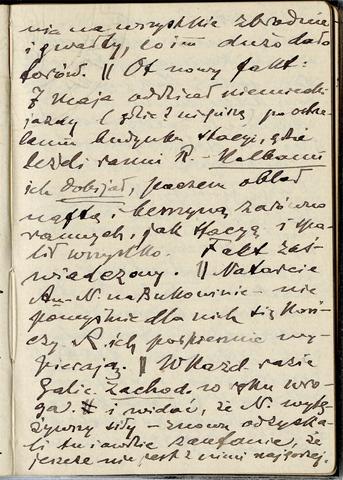 nia na wszystkie zbrodnie
i gwałty, co im dużo dało
torów. || Ot nowy fakt:
7 maja oddział niemieckiej
jazdy ( po ostrze-
laniu budynku stacyi, gdzie
leżeli ranni R. - Kolbami
ich dobijał, poczem oblał
naftą i benzyną zarówno
rannych, jak stację i spa-
lił wszystko. Fakt zaś-
wiadczony. || Natarcie
Au-N. na Bukowinie - nie
pomyślnie dla nich się koń-
czy. R. ich pospiesznie wy-
pierają. || W każd. razie
Galic. zachod. w ręku wro-
ga. # i widać, że N. wytę-
żywszy siły - znowu odzyska-
li tu i ówdzie zaufanie, że
jeszcze nie jest z nimi najgorzej.